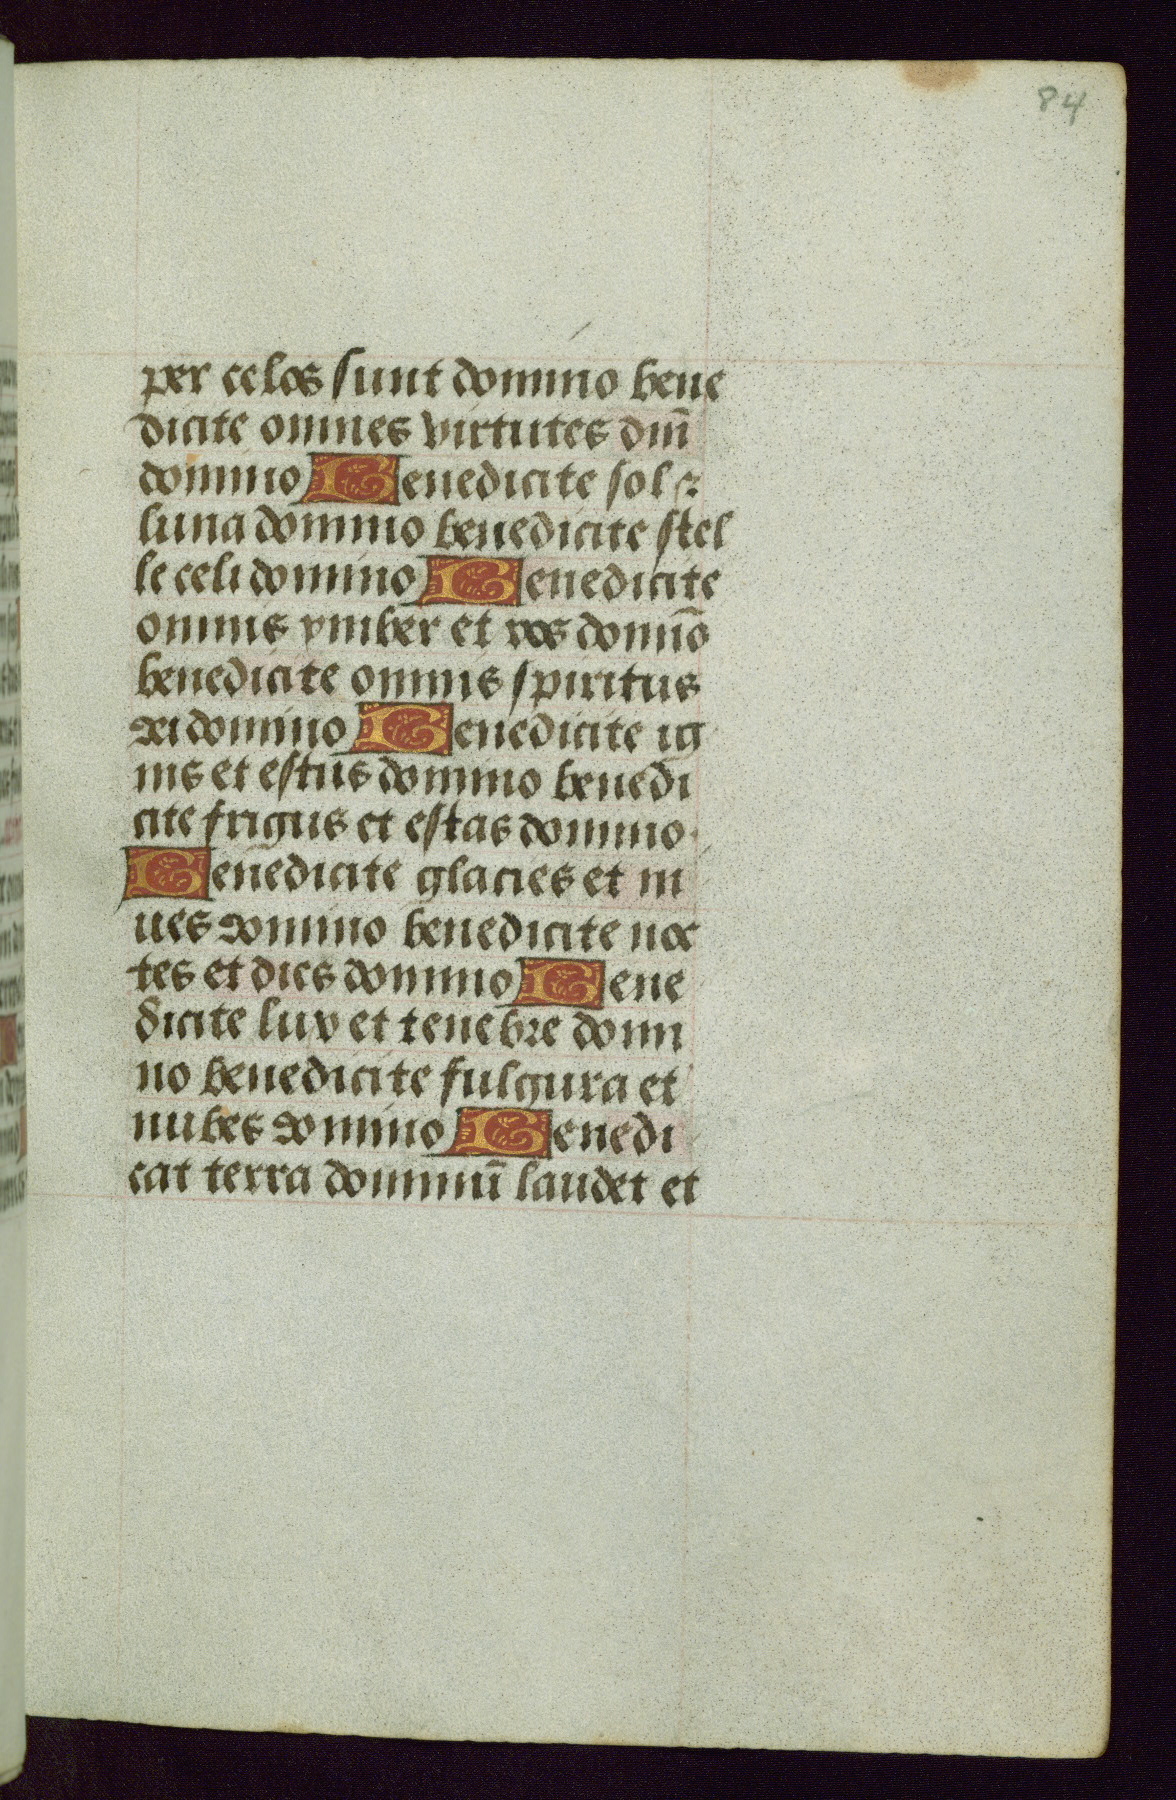 84
per celos sunt domino bene
dicite omnes virtutes dm̄i
domino Benedicite sol ⁊
luna domino benedicite stel
le celi domino Benedicite
omnis ymber et ros domı̄o
benedicite omnis spiritus
dei domino Benedicite ig
nis et estus domino benedi
cite frigus et estas domino.
Benedicite glacies et ni
ues domino benedicite noc
tes et dies domino Bene
dicite lux et tenebre domi
no benedicite fulgura et
nubes domino Benedi
cat terra dominū laudet et